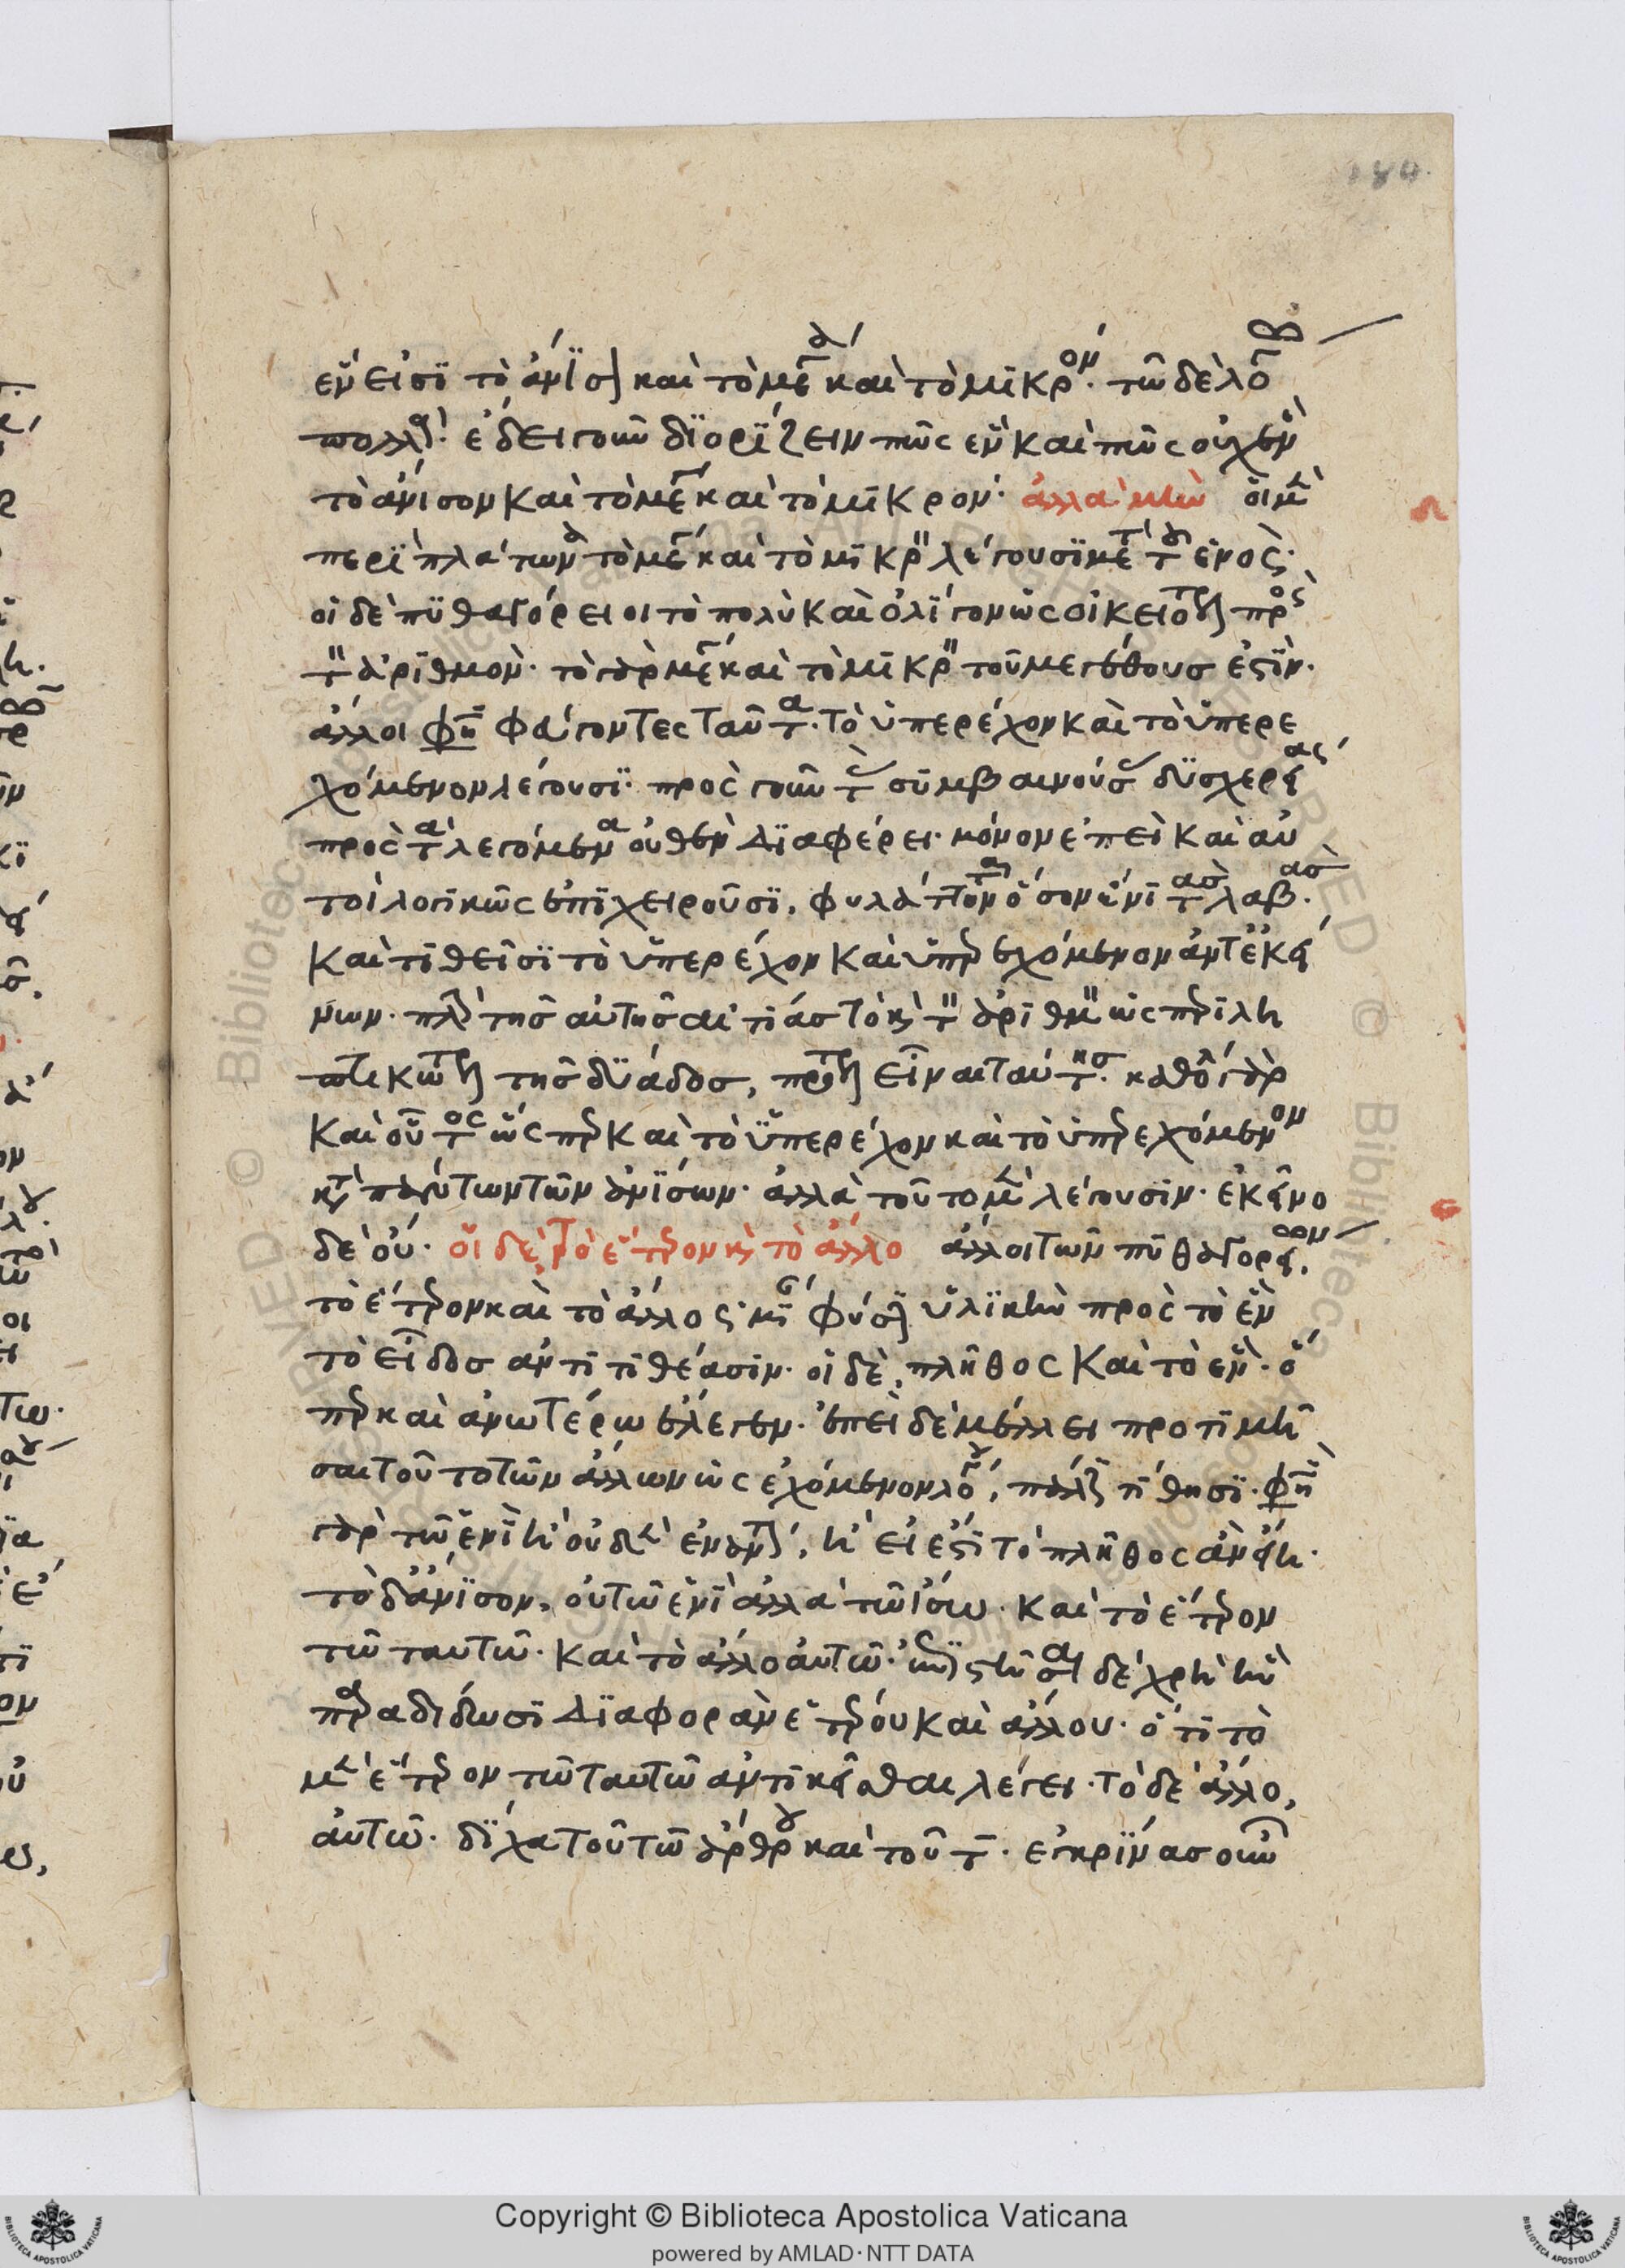 184.
ἕν εἰσι τὸ ἄνισον καὶ τὸ μέγα καὶ τὸ μικρόν. τῶ δὲ λό
πολλά. ἔδει γοῦν διορίζειν πῶς ἓν καὶ πῶς οὐχ ἓν
τὸ ἄνισον καὶ τὸ μέγα καὶ τὸ μικρον. ἀλλα μὴν οἱ μὲν
περὶ πλάτωνα τὸ μέγα καὶ τὸ μικρὸν λέγουσι μετὰ τοῦ ἑνός.
οἱ δὲ πυθαγόρειοι τὸ πολὺ καὶ ὀλίγον ὡς οἰκειότερον πρὸς
τὸν ἀριθμόν. τὸ γὰρ μέγα καὶ τὸ μικρὸν τοῦ μεγέθους ἐστίν.
ἄλλοι φησὶ φεύγοντες ταῦτα. τὸ ὑπερέχον καὶ τὸ ὑπερε
χόμενον λέγουσι. πρὸς γοῦν τὰς συμβαινούσας δυσχερείας
πρὸς τὰ λεγόμενα οὐθὲν διαφέρει. μόνον ἐπεὶ καὶ αὐ
τοὶ λογικῶς ἐπιχειροῦσι, φυλάττονται ὅσον ἔνι τὰς λαβάς.
καὶ τιθεῖσι τὸ ὑπερέχον καὶ ὑπερεχόμενον ἀντ ἐκεί
νων. πλὴν τῆς αὐτῆς αἰτίας τὸ καὶ τὸν ἀριθμὸν ὡς περιλη
πτικώτερον τῆς δυάδος, πρότερον εἶναι ταύτης. καθόλου γὰρ
καὶ οὗτος ὥσπερ καὶ τὸ ὑπερέχον καὶ τὸ ὑπερεχόμενον
κατὰ πάντων τῶν ἀνίσων. ἀλλὰ τοῦτο μὲν λέγουσιν. ἐκεῖνο
δὲ οὔ. οἱ δὲ τὸ ἕτερον καὶ τὸ ἄλλο ἄλλοι τῶν πυθαγορείων.
τὸ ἕτερον καὶ τὸ ἄλλο ς μὲν φύσιν ὑλικὴν πρὸς τὸ ἓν
τὸ εἶδος ἀντιτιθέασιν. οἱ δὲ, πλῆθος καὶ τὸ ἕν. ὅ
περ καὶ ἀνωτέρω ἐλέγεν. ἐπεὶ δὲ μέλλει προτιμῆ
σαι τοῦτο τῶν ἄλλων ὡς ἐχόμενον λόγου, πάλιν τίθησι. φησὶ
γὰρ τῶ ἑνὶ ἢ οὐδὲν ἐναντίον, ἢ εἰ ἔστι τὸ πλῆθος ἂν εἴη.
τὸ δ ἄνισον, οὐ τῶ ἑνὶ ἀλλὰ τῶ ἴσω. καὶ τὸ ἕτερον
τῶ ταυτῶ. καὶ τὸ ἄλλο αὐτῶ. ἐπιστῆσαι δὲ χρὴ ἣν
παραδίδωσι διαφορὰν ἑτέρου καὶ ἄλλου. ὅτι τὸ
μὲν ἕτερον τῶ ταυτῶ ἀντικεῖσθαι λέγει. τὸ δὲ ἄλλο,
αὐτῶ. δίχα τοῦ τῶ ἄρθρου καὶ τοῦ τ. ἐγκρίνας οὖν
Copyright © Biblioteca Apostolica Vaticana
powered by AMLAD·NTT DATA